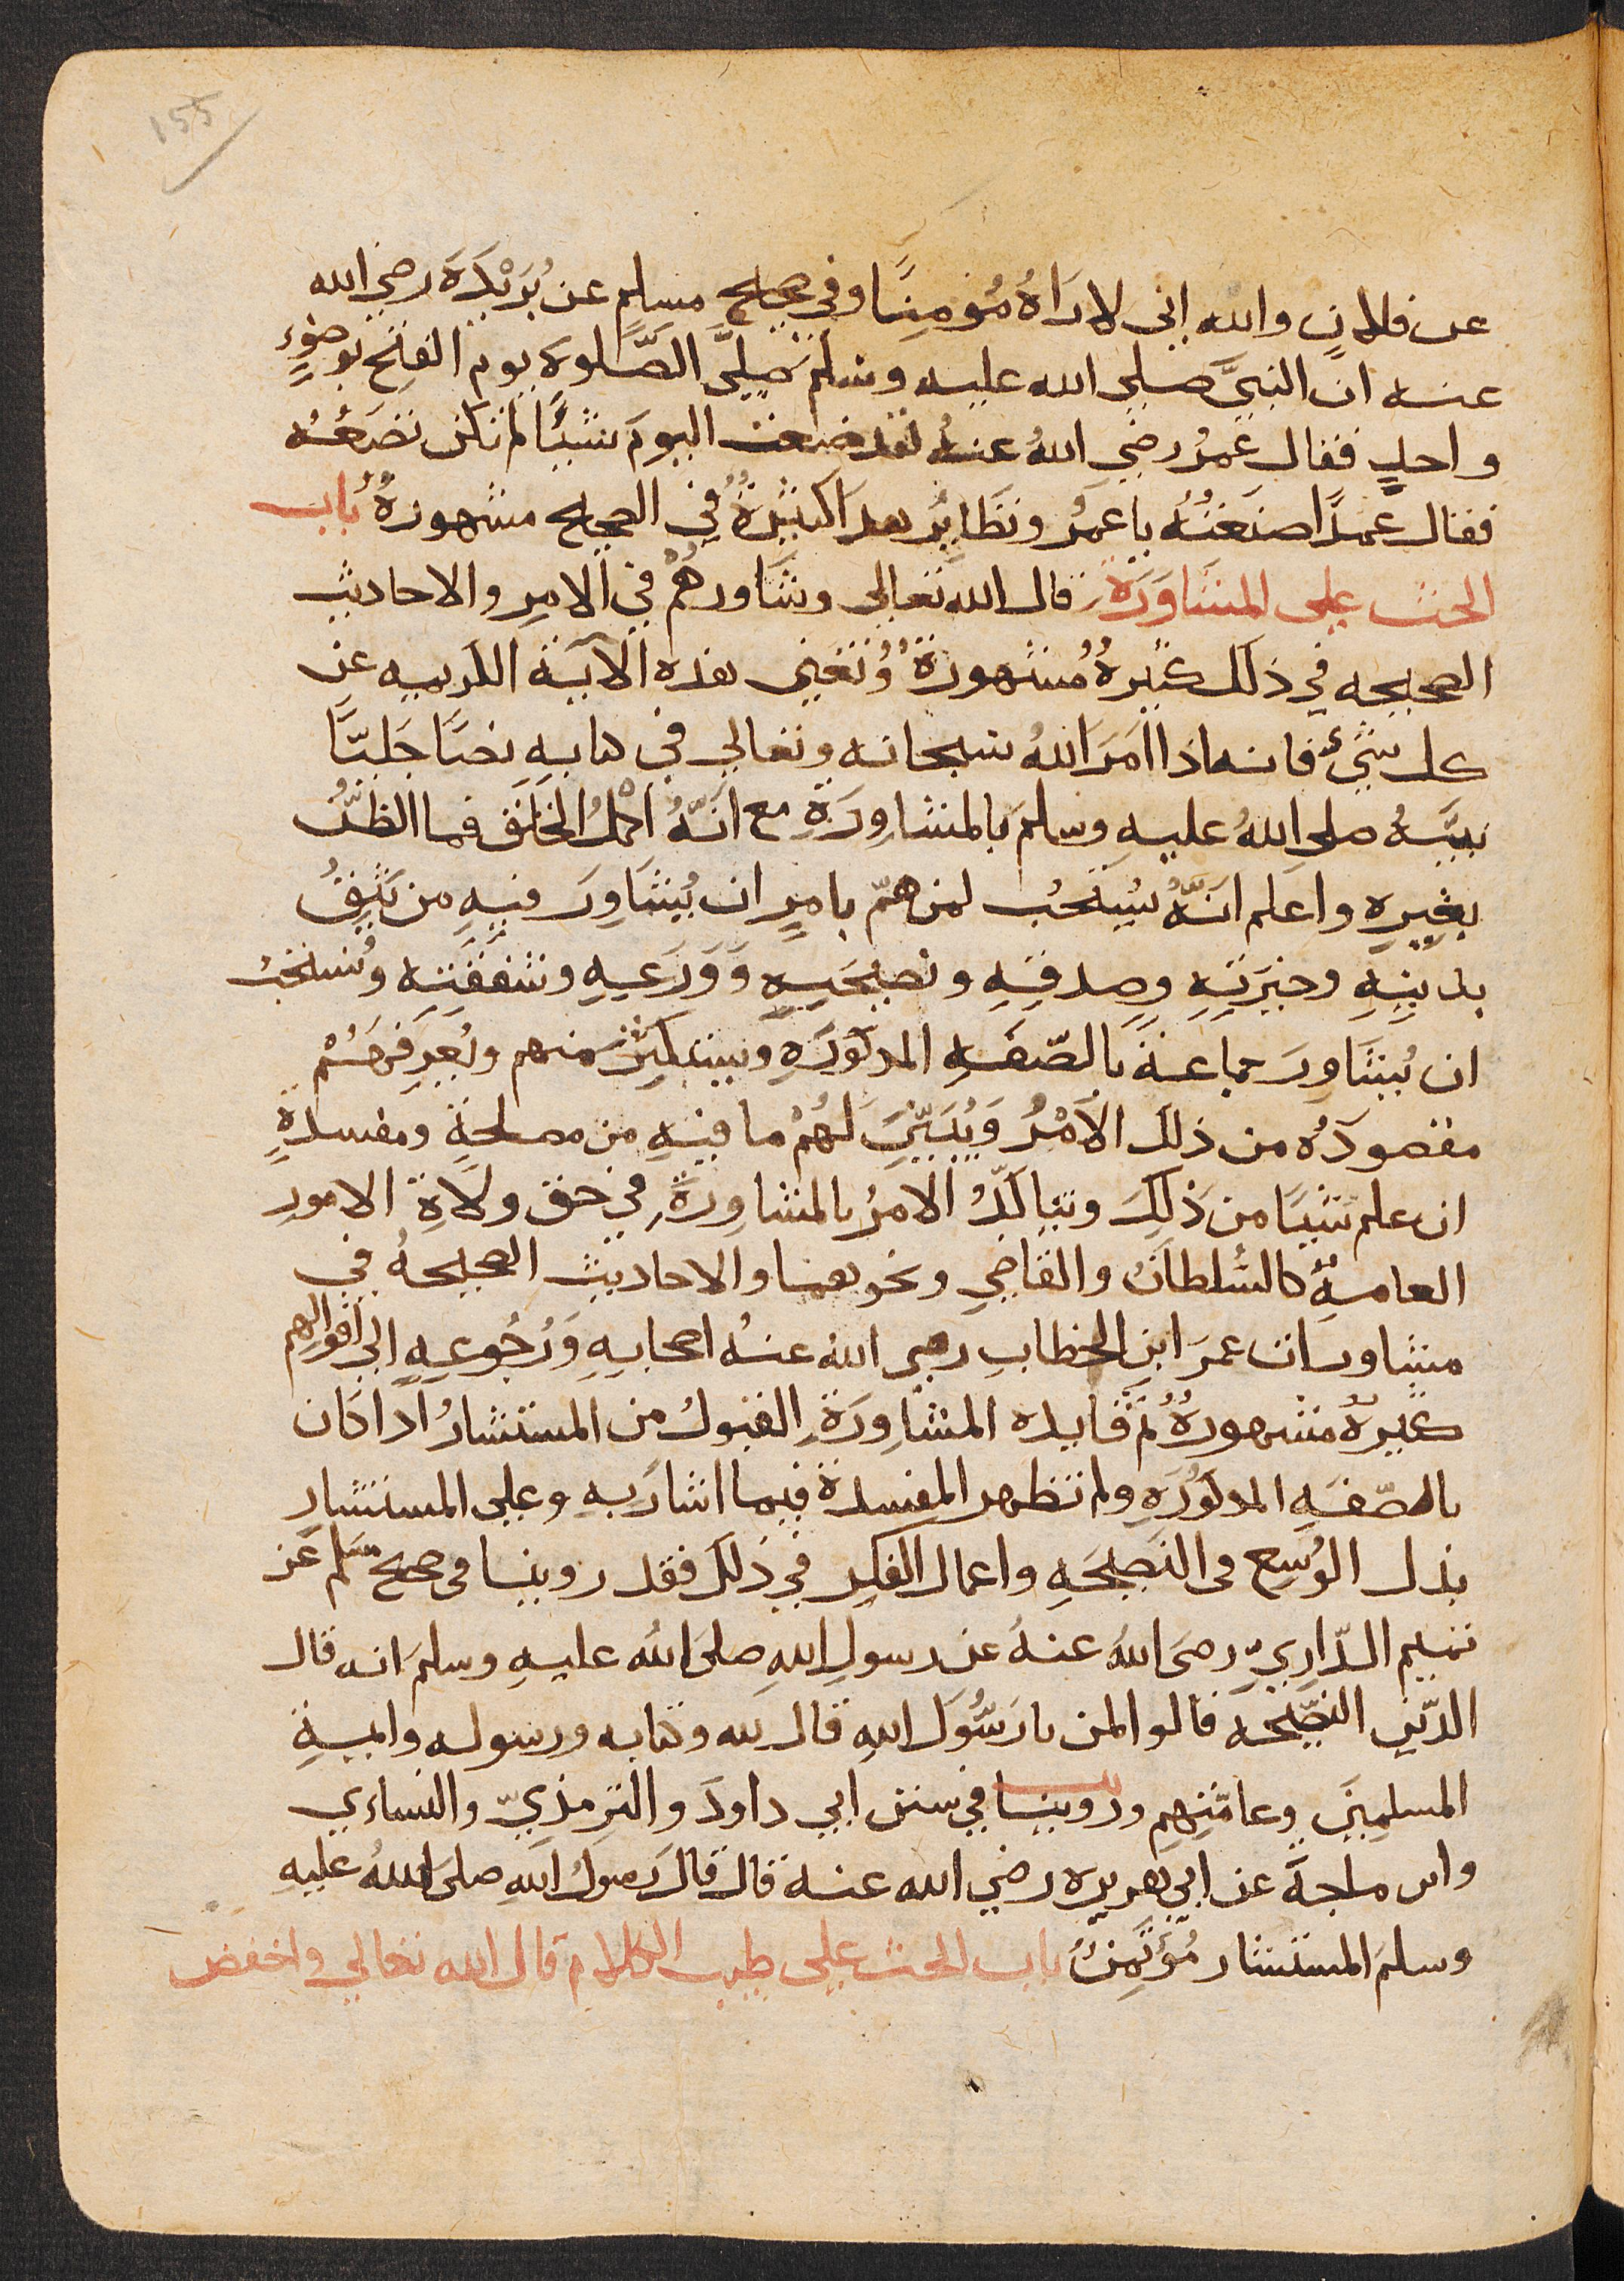 155
عن فلان والله انى لاراهُ مُؤمِنًا وفي صحيح مسلم عن بُرَيْدَةَ رضي الله
عنه ان النبيَّ صلى الله عليه وسلم صلَّى الصَّلوة يوم الفتح بوضوءٍ
واحدٍ فقال عُمرُ رضي اللهُ عنهُ لقد صنعت اليومَ شيئًا لم تكن تصنَعُهُ
فقال عمدًا صنعتُهُ يا عمَرُ ونظايرُ هذا كثيرةٌ في الصحيح مشهورةٌ باب
الحث على المشاوَرَة قال الله تعالى وشَاورهُمْ في الامر والاحاديث
الصحيحه في ذلك كثيرةٌ مُشهورةٌ وُتغني هذه الآية الكريمه عن
كل شيءٍ فانه اذا امَرَ اللهُ سبحانه وتعالى في كتابهِ نصًا جَليًّا
نبيَّهُ صلى اللهُ عليهِ وسلمَ بالمشاورَةِ مع انَّهُ اكملُ الخلق فما الظنُّ
بغيرِهِ واعلم انَّهُ يُستحبُ لمن همّ بامرٍ ان يُشَاورَ فيهِ من يَثِقُ
بدينِهِ وخبرَتِهِ وصدقِهِ ونصيحَتِهِ وَوَرَعِهِ وشفقَتِهِ ويُستحَبُ
ان يُشَاوِرَ جماعةً بالصّفَهِ المذكورَهِ ويستكثِرَ منهم ويُعرِفَهُمْ
مقصودَهُ من ذلك الأَمْرُ وَيُبَيّنَ لَهُمْ ما فيهِ من مصلحةٍ ومفسدةٍ
ان علم شيئًا من ذَلِكَ ويتاكدُ الامرُ بالمشاورَةِ في حق ولَاةِ الامورِ
العامهِ كالسُلطان والقاضِي ونحوهما والاحاديث الصحيحهُ في
مشاورات عمرَ ابنِ الخطابِ رضي اللهُ عنهُ اصحابِهِ وَرُجُوعِهِ الى اقوالهم
كثيرةٌ مشهورةٌ ثم فَايده المشَاورَةِ القبولُ من المستشارُ اذا كان
بالصّفَهِ المذكورَهِ ولم تظهر المفسدة فيما اشارَ بهِ وعلى المستشارِ
بذل الوُسع في النَصيحَهِ واعمال الفكرِ في ذلك فقد روينا في صحيح مسلم عَن
تميم الدّارِيِّ رضىَ اللهُ عنهُ عن رسولِ اللهِ صلى اللهُ عليهِ وسلمَ انه قال
الدّينُ النصيّحَه قالوا لمن يا رَسُولَ اللهِ قال لله وكتابه ورسوله وايمةِ
المسلمِينَ وعامّتِهِم وروينا في سنن ابي داودَ والترمذيّ والنساءي
وابن ماجةَ عن ابي هريره رضي الله عنه قال قالَ رسولُ اللهِ صلى اللهُ عليهِ
وسلمَ المستشار مُؤْتَمِنٌ باب الحث على طيب الكلام قال الله تعالى واخفض